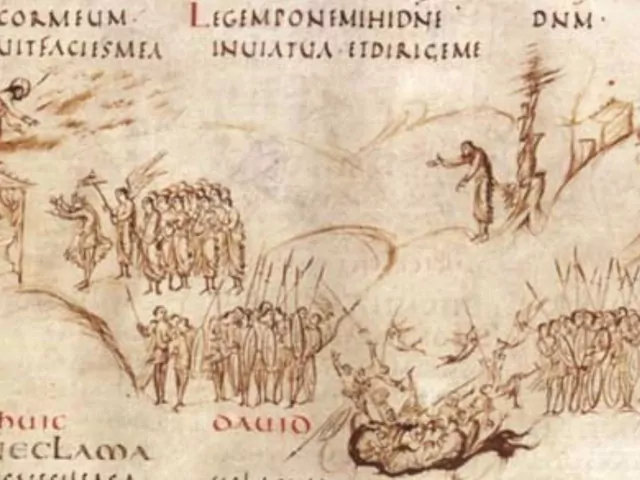 CORMEUM·
UITFACIESMEA
LEGEMPONEMIHIDNE
INUIATUA·ETDIRIGEME
DNM·
HUIC
DAUID
NECLAMA